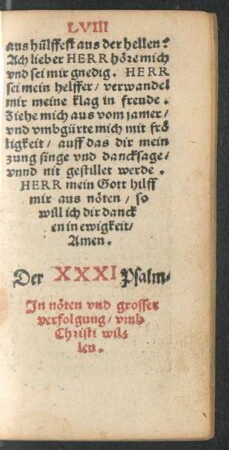 LVIII
aus hülffest aus der hellen?
Ach lieber HERR höre mich
vnd sei mir gnedig. HERR
sei mein helffer/ verwandel
mir meine klag in freude.
Ziehe mich aus vom jamer/
vnd vmbgürte mich mit frö
ligkeit/ auff das dir mein
zung singe vnd dancksage/
vnnd nit gestillet werde.
HERR mein Gott hilff
mir aus nöten/ so
will ich dir danck
en in ewigkeit/
Amen.
Der XXXI Psalm/
In nöten vnd grosser
verfolgung/ vmb
Christi wil⸗
len.